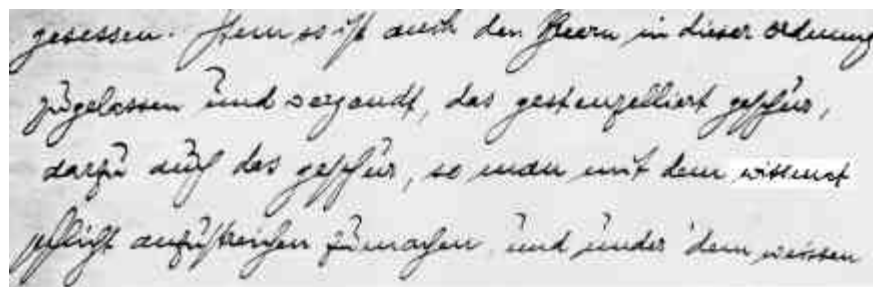 gesessen. Item so ist auch den Herrn in dieser ordnung
zůgelassen ůnd vergandt, das gestenzelliert geschür,
darzů aůch das geschür, so man mit dem wismat
pflicht anzůstreichen zůmachen, ůnd ůnder dem weissen